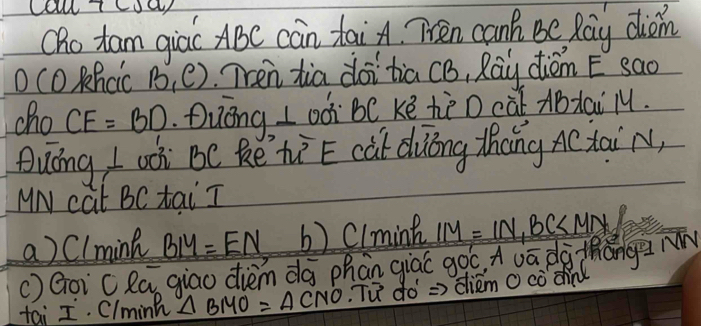 Câu 4 (3đ)
Cho tam giác ABC cân tại A. Trên cạnh BC lấy điểm
D (D khác B, C). Trên tia đối tia CB, lấy điểm E sao
cho CE = BD. Đường ⊥ với BC kẻ từ D cắt AB tại M.
Đường ⊥ với BC kẻ từ E cắt đường thẳng AC tại N,
MN cắt BC tại I
a) C/minh BM = EN b) C/minh IM = IN, BC < MN
c) Gọi O là giao điểm đg phân giác góc A và đg thẳng ⊥ MN
tại I. C/minh Δ BMO = Δ CNO. Từ đó => điểm O cố định